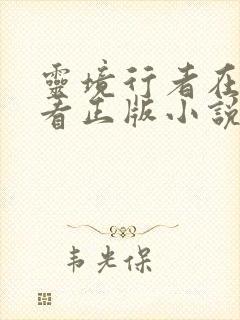 靈境行者在
者正版小說
韦光保